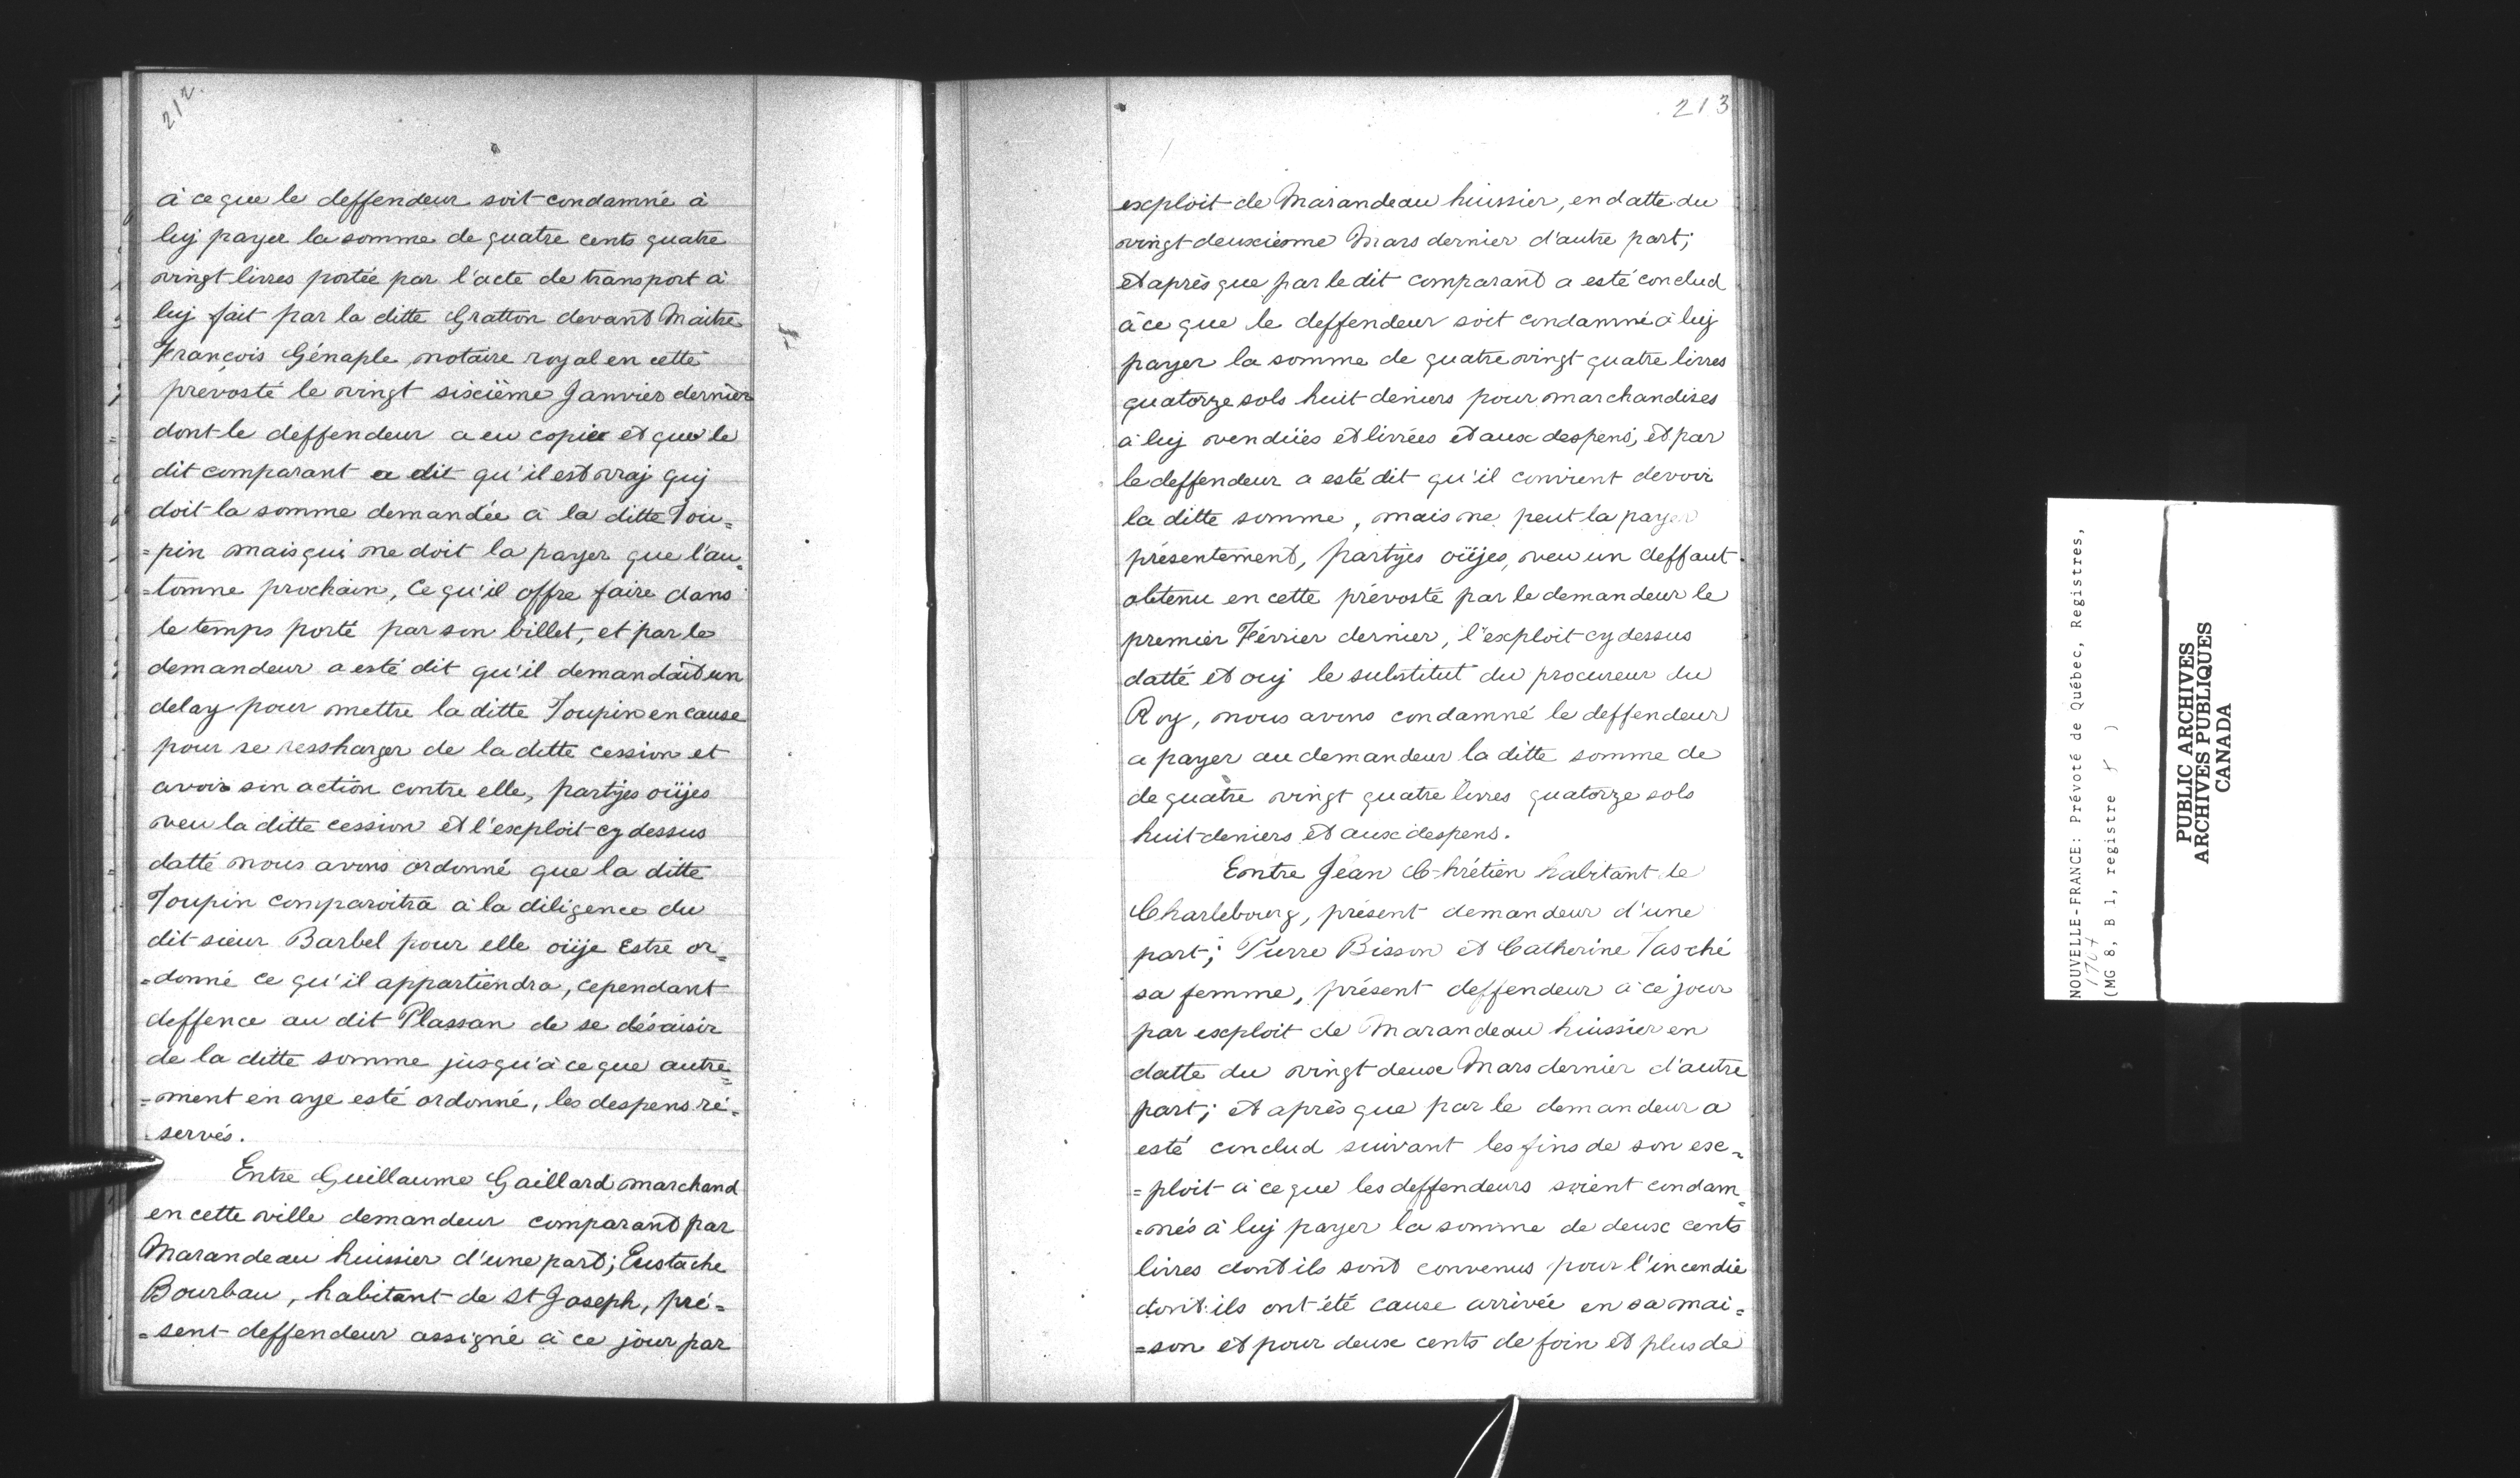 212.
à ce que le deffendeur soit condamné à
luy payer la somme de quatre cents quatre
vingt livres portée par l'acte de transport à
luy fait par la ditte Gratton devant Maitre
François Génaple notaire royal en cette
prevosté le vingt sixiême Janvier dernier
dont le deffendeur a eu copie et que le
dit comparant a dit qu'il est vray quj
doit la somme demandée à la ditte Tou=
=pin mais qui ne doit la payer que l'au=
=tomne prochain, Ce qu'il offre faire dans
le temps porté par son billet, et par le
demandeur a esté dit qu'il demandait un
delay pour mettre la ditte Toupin en cause
pour se ressharger de la ditte cession et
avoir son action contre elle, partyes oüyes
veu la ditte cession et l'exploit cy dessus
datté nous avons ordonné que la ditte
Toupin comparoitra à la diligence du
dit sieur Barbel pour elle oüye Estre or=
=donné ce qu'il appartiendra, cependant
deffence au dit Plassan de se désaisir
de la ditte somme jusqu'à ce que autre=
=ment en aye esté ordonné, les despens ré=
servés.
Entre Guillaume Gaillard marchand
en cette ville demandeur comparant par
Marandeau huissier d'une part; Eustache
Bourbau, habitant de St Joseph, pré=
=sent deffendeur assigné à ce jour par
213
exploit de Marandeau huissier, en datte du
vingt deuxiesme Mars dernier d'autre part;
et après que par le dit comparant a esté conclud
à ce que le deffendeur soit condamné à luy
payer la somme de quatre vingt quatre livres
quatorze sols huit deniers pour marchandises
à luy vendües et livrées et aux despens; et par
le deffendeur a esté dit qu'il convient devoir
la ditte somme, mais ne peut la payer
présentement, partyes oüyes, veu un deffaut
obtenu en cette prévosté par le demandeur le
premier Février dernier, l'exploit cy dessus
datté et ouy le substitut du procureur du
Roy, nous avons condamné le deffendeur
a payer au demandeur la ditte somme de
de quatre vingt quatre livres quatorze sols
huit deniers et aux despens.
Entre Jean Chrétien habitant de
Charlebourg, présent demandeur d'une
part; Pierre Bisson et Catherine Tasché
sa femme, présent deffendeur à ce jour
par exploit de Marandeau huissier en
datte du vingt deux Mars dernier d'autre
part; et après que par le demandeur a
esté conclud suivant les fins de son ex=
=ploit à ce que les deffendeurs soient condam=
=nés à luy payer la somme de deux cents
livres dont ils sont convenus pour l'incendie
dont ils ont été cause arrivée en sa mai=
=son et pour deux cents de foin et plus de
NOUVELLE-FRANCE: Prévoté de Québec, Registres,
(MG 8, B 1, registre )
PUBLIC ARCHIVES
ARCHIVES PUBLIQUES
CANADA